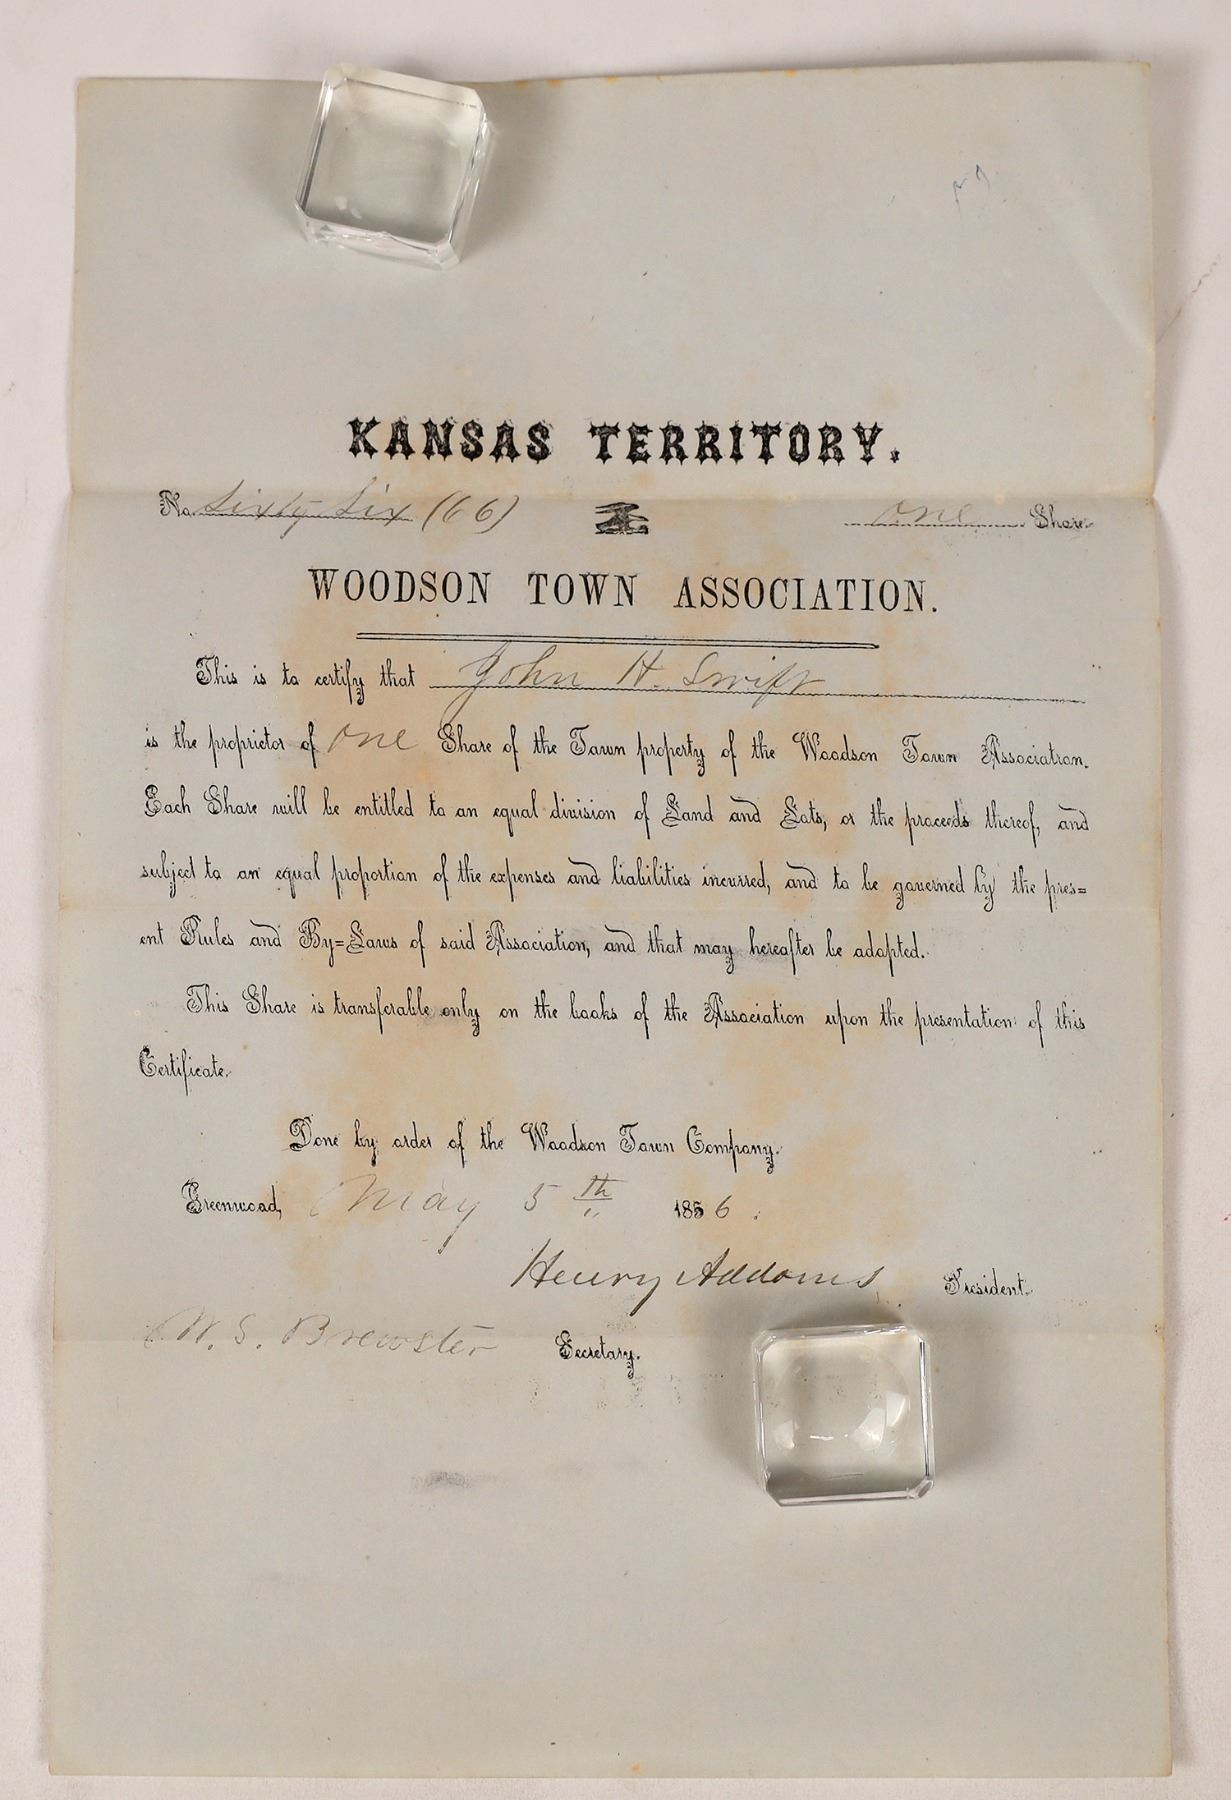 KANSAS TERRITORY.
No. Sixty Six (66) one Share
WOODSON TOWN ASSOCIATION.
This is to certify that John H. Swift
is the proprietor of one Share of the Town property of the Woodson Town Association.
Each Share will be entitled to an equal division of Land and Lots, or the proceeds thereof, and
subject to an equal proportion of the expenses and liabilities incurred, and to be governed by the pres=
ent Rules and By=Laws of said Association, and that may hereafter be adopted.
This Share is transferable only on the books of the Association upon the presentation of this
Certificate.
Done by order of the Woodson Town Company.
Greenwood, May 5th 1856.
Henry Addoms President.
W. S. Brewster Secretary.